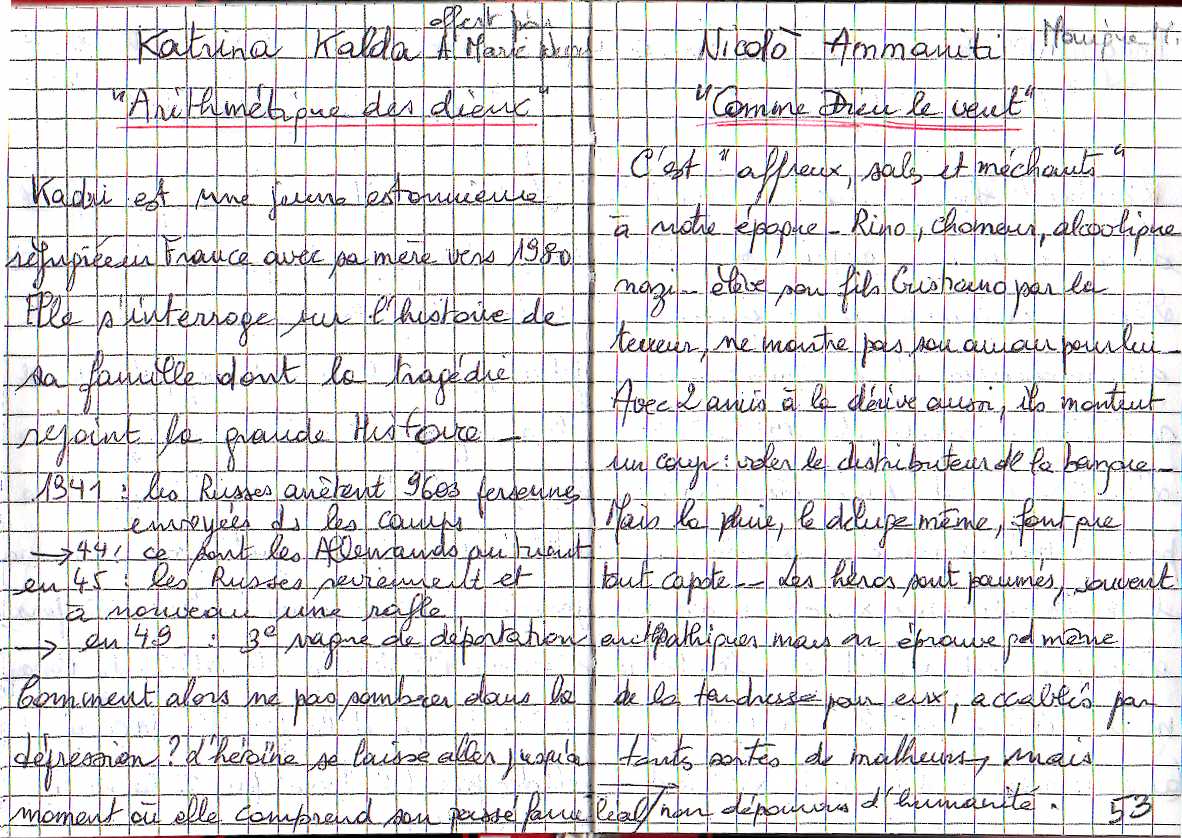 offert par
Katrina Kalda A Marie
"Arithmétique des dieux"
Kadri est une jeune estonienne
réfugiée en France avec sa mère vers 1980
Elle s'interroge sur l'histoire de
sa famille dont la tragédie
rejoint la grande Histoire –
1941 : les Russes arrêtent 9603 personnes
envoyées ds les camps
→ 44 : ce sont les Allemands qui tuent
en 45 : les Russes reviennent et
à nouveau une rafle
→ en 49 : 3e vague de déportation
Comment alors ne pas sombrer dans la
dépression ? L'héroïne se laisse aller jusqu'à
moment où elle comprend son passé familéal/
Nicolò Ammaniti Monique H.
"Comme Dieu le veut"
C'est "affreux, sales et méchants"
à notre époque – Rino, chomeur, alcoolique
nazi – élève son fils Cristiano par la
terreur, ne montre pas son amour pour lui –
Avec 2 amis à la dérive aussi, ils montent
un coup : voler le distributeur de la banque –
Mais la pluie, le déluge même, font que
tout capote -- Les héros sont paumés, souvent
antipathiques mais on éprouve qd même
de la tendresse pour eux, accablés par
touts sortes de malheurs, mais
non dépourvus d'humanité. 53